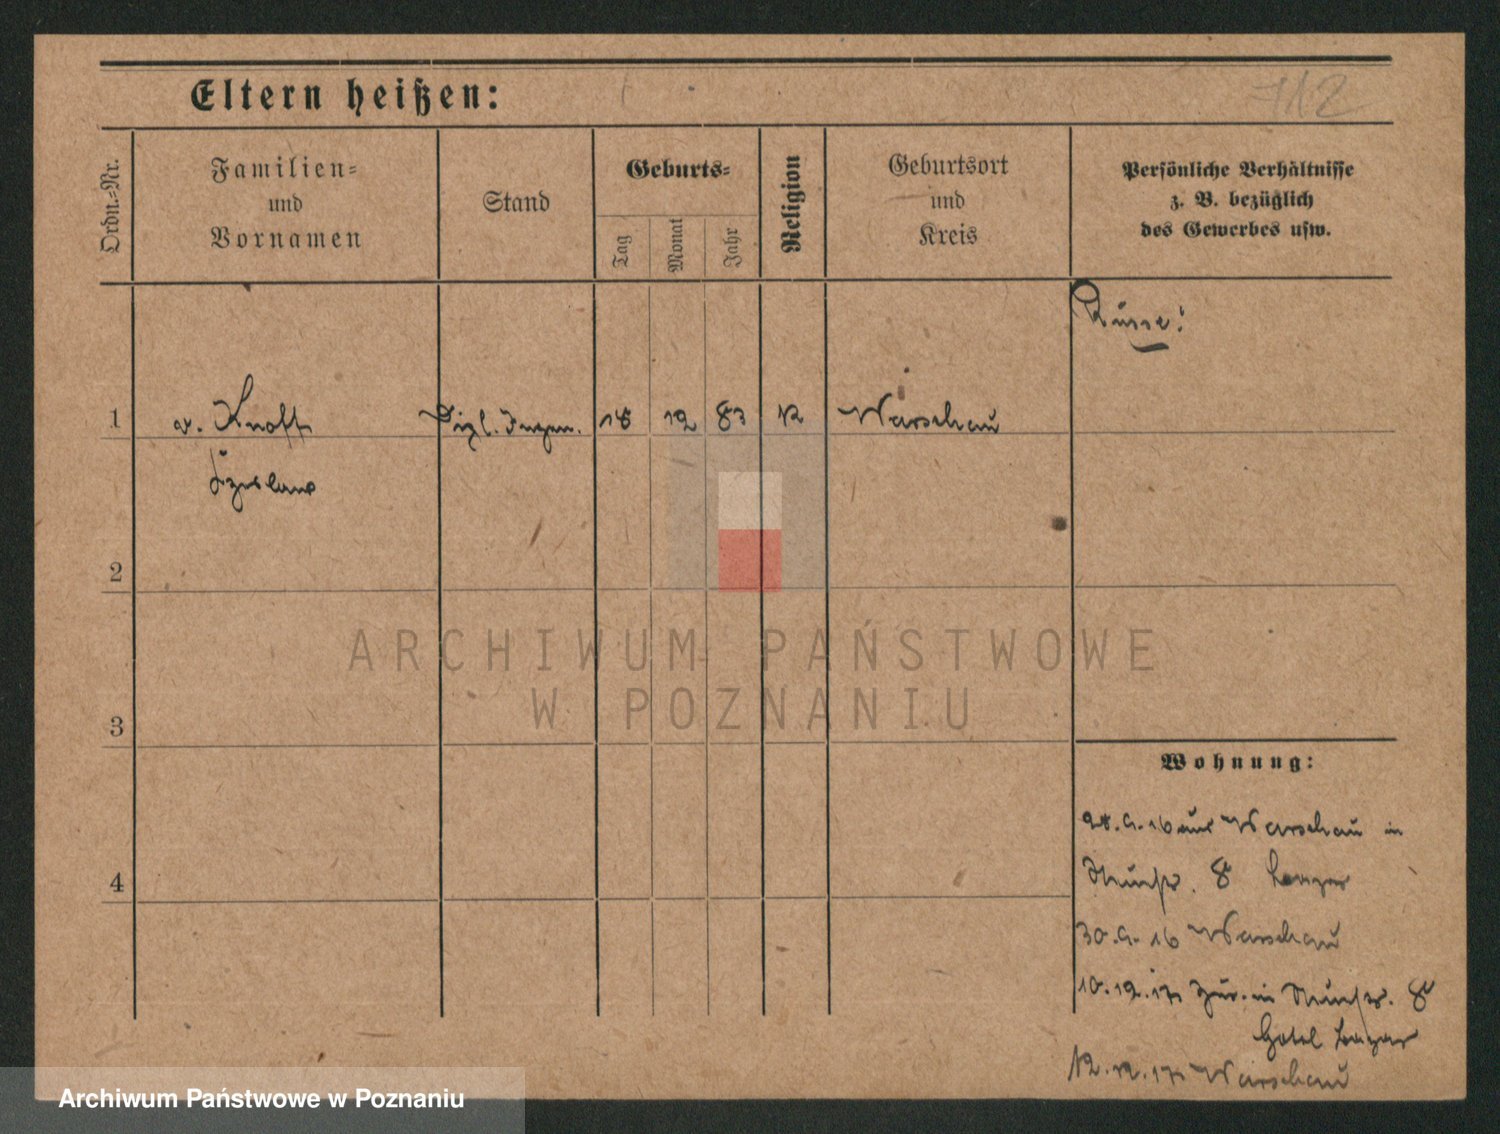 Eltern heißen:
712
Ordn.-Nr.
Familien-
und
Vornamen
Stand
Geburts-
Tag
Monat
Jahr
Religion
Geburtsort
und
Kreis
Persönliche Verhältnisse
z. B. bezüglich
des Gewerbes usw.
Russe!
1
v. Knoff
Dipl. Ingen.
18
12
83
K
Warschau
2
ARCHIWUM PAŃSTWOWE
W POZNANIU
3
Wohnung:
28.9.16 aus Warschau in
8
4
30.9.16 Warschau
10.12.17 zur. in 8
Hotel Bazar
12.12.17 Warschau
Archiwum Państwowe w Poznaniu